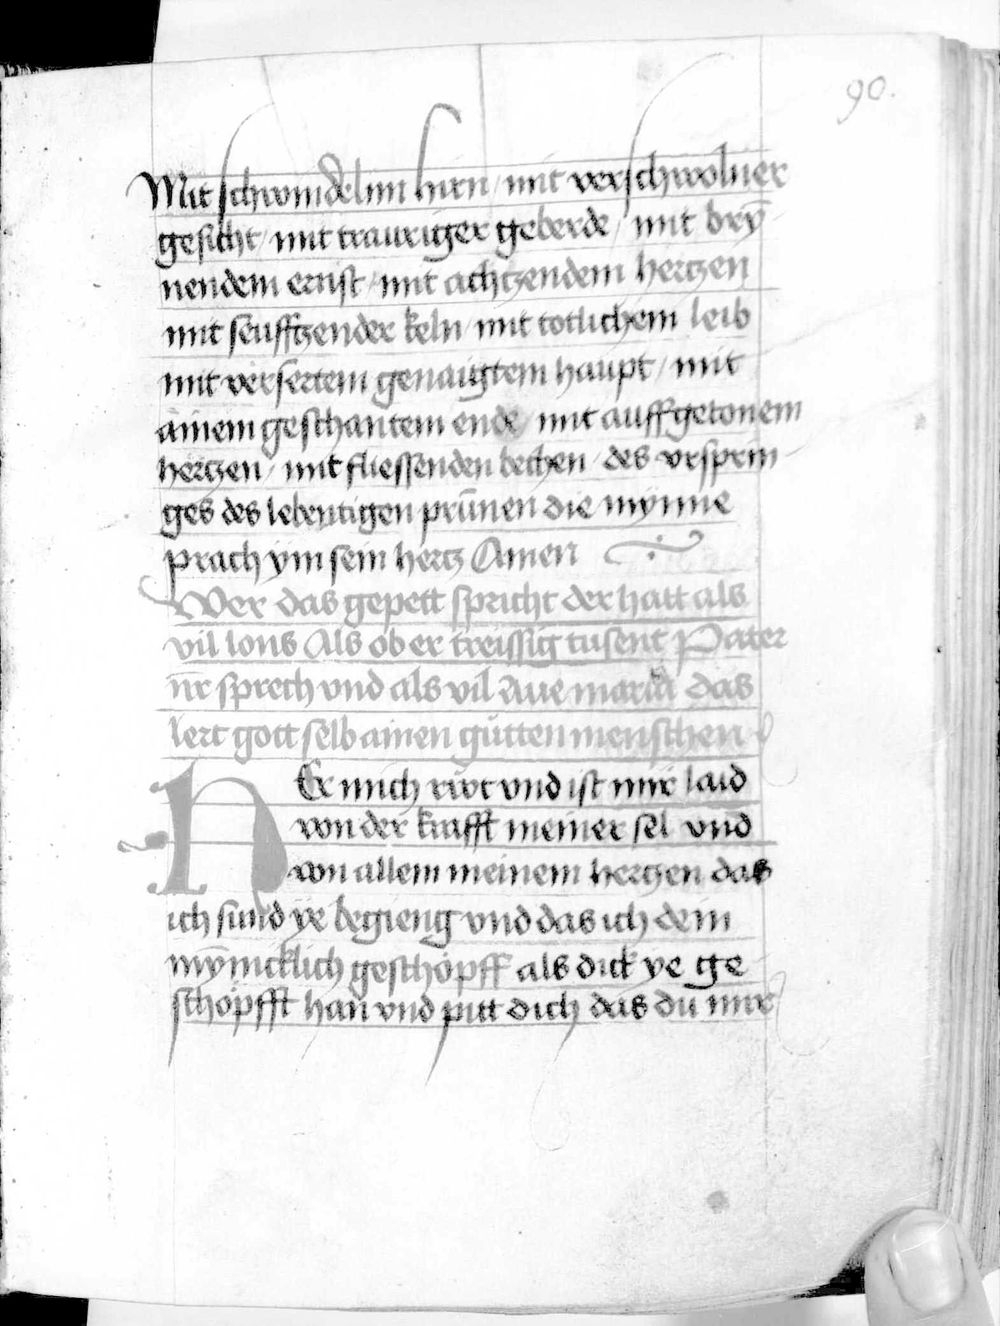 90.
Mit schwindelnn hirn / mit verschwolner
gesicht / mit trauriger geberde / mit bry̅
nendem ernst / mit achtzendem hertzen
mit seufftzender keln / mit totlichem leib
mit versertem genaigtem haupt / mit
ainem geschantem ende / mit auffgetonem
hertzen / mit fliessenden bechen / des vrsprin
ges des lebentigen pru̅nen die mynne
prach ym sein hertz Amen
Wer das gepett spricht der hatt als
vil lons Als ob er treissig tusent Pater
nr̅ sprech vnd als vil Aue maria das
lert gott selb ainen gůtten menschen
HEr mich riwt vnd ist mir laid
von der krafft meiner sel vnd
von allem meinem hertzen das
ich sund ye begieng vnd das ich dein
my̅nicklich geschöpff als dick ye ge
schöpfft han vnd pitt dich das du mir